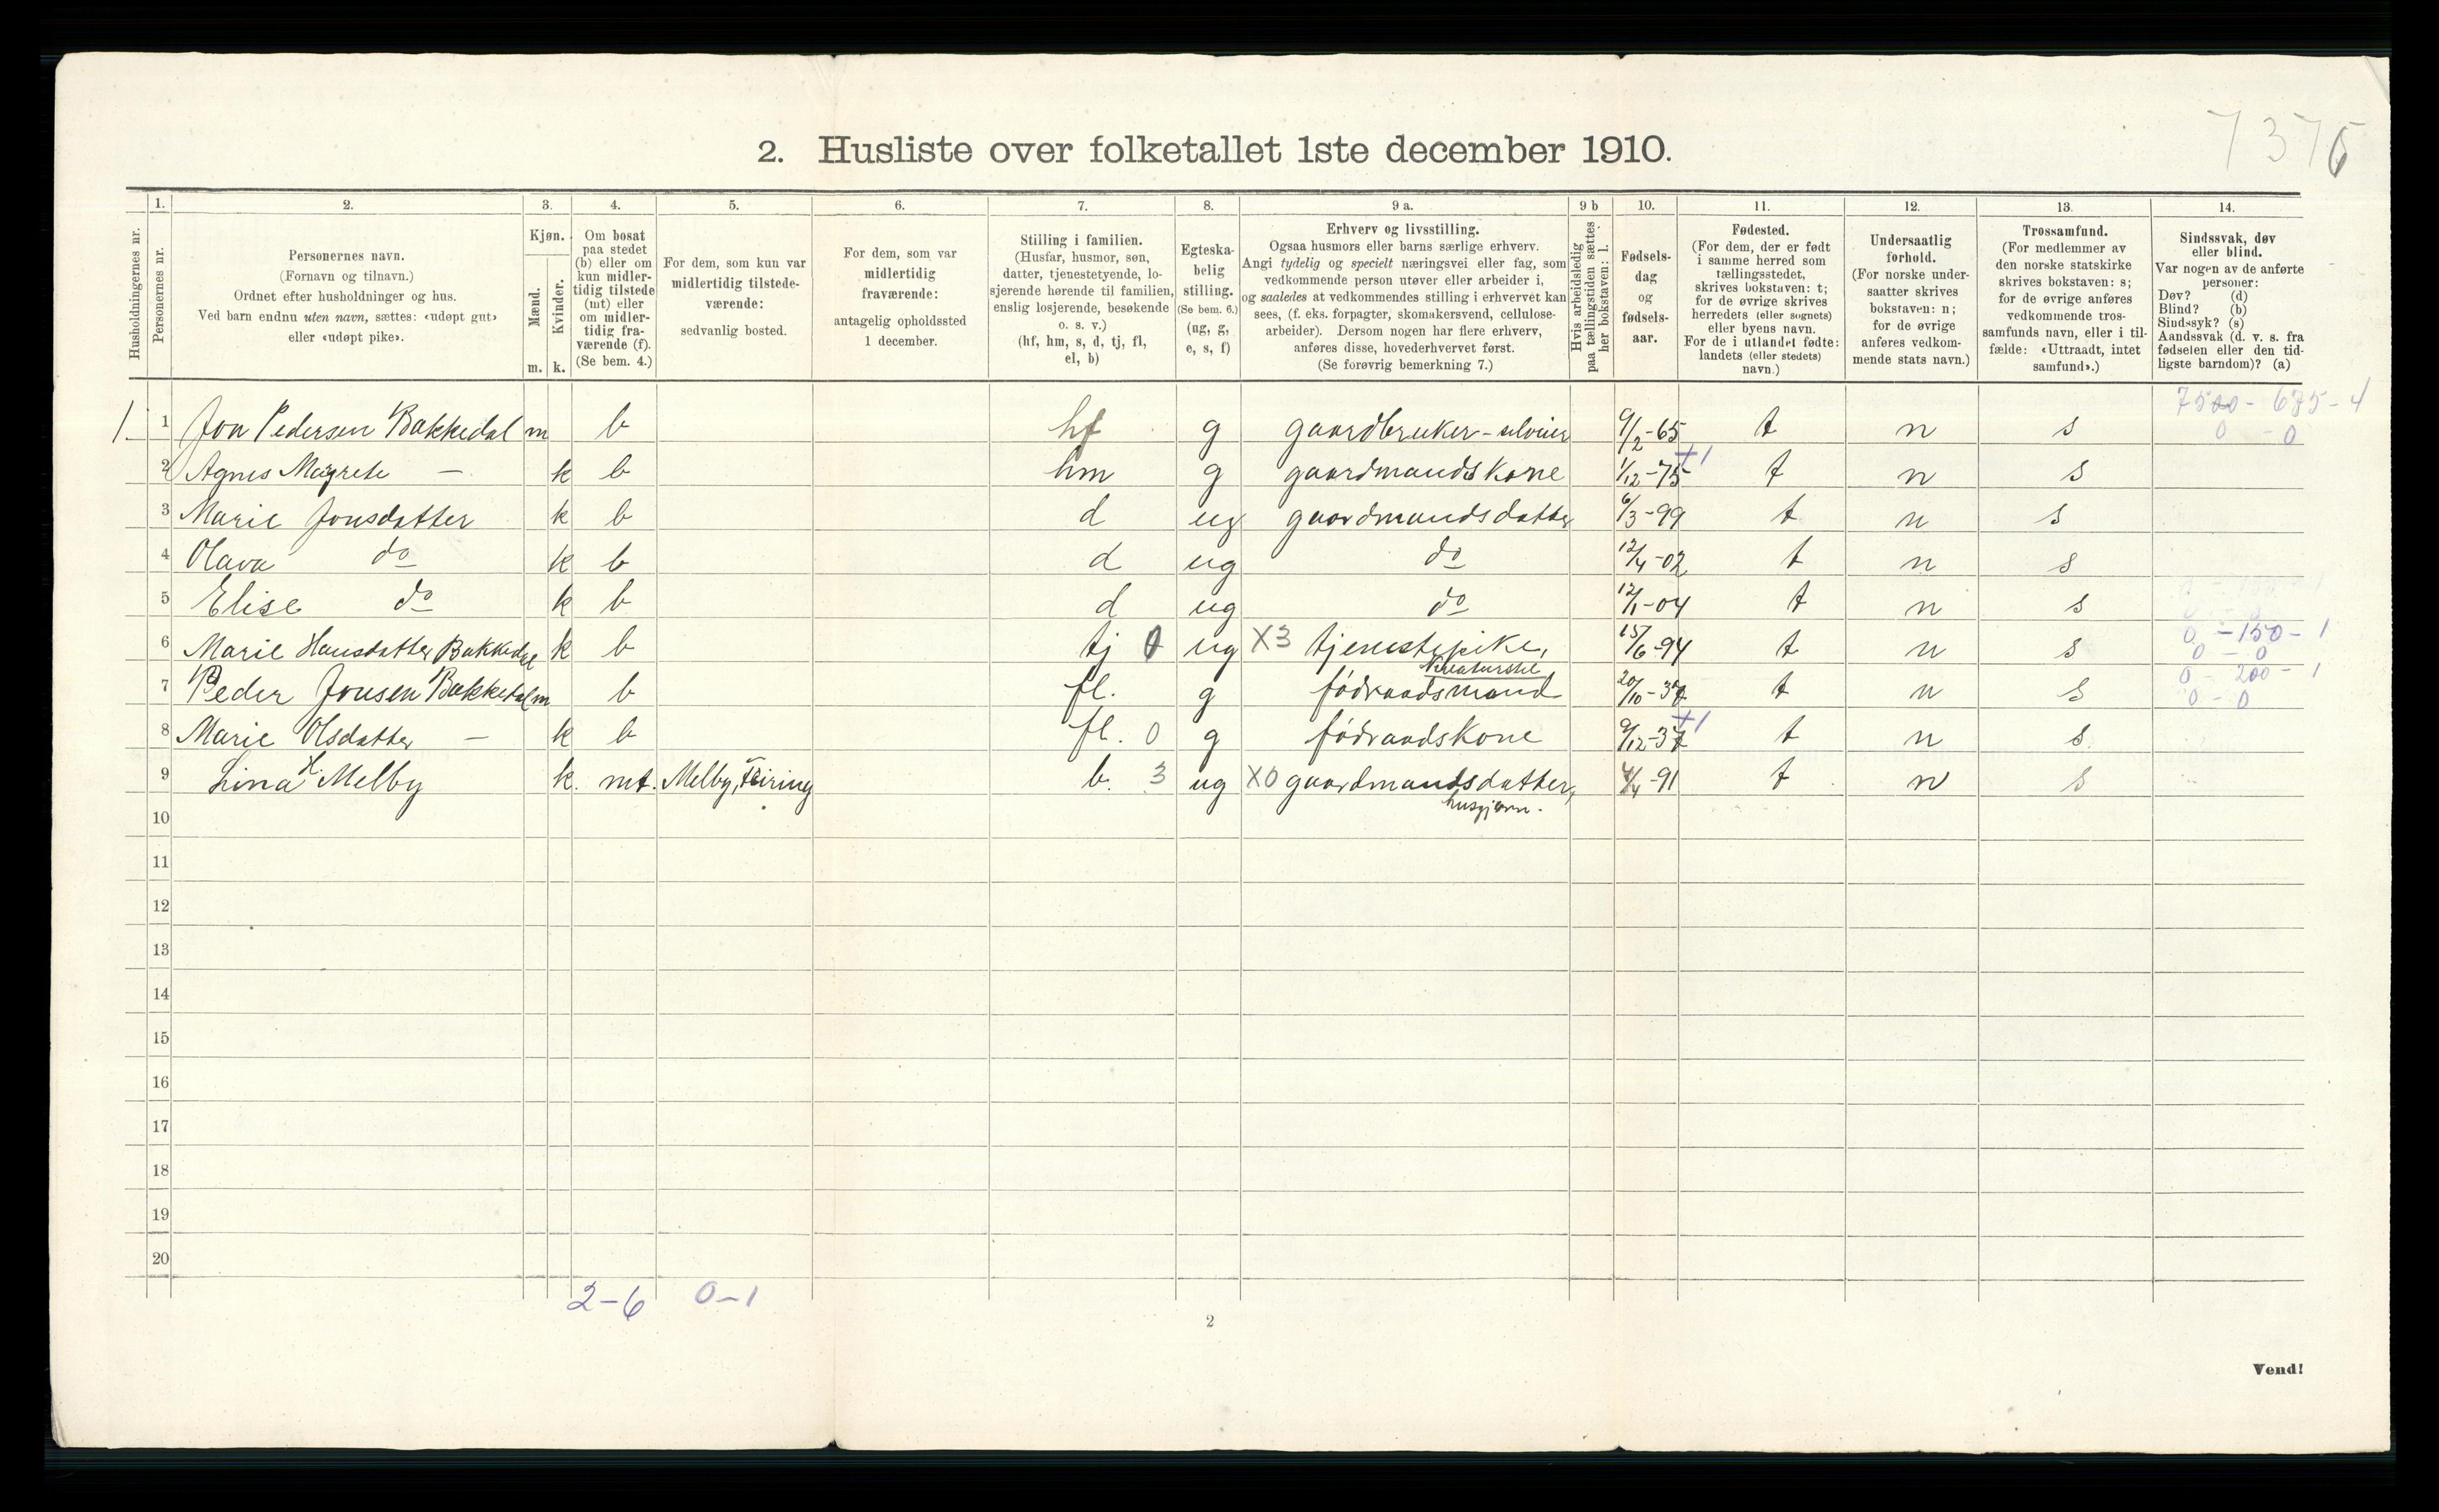 7376
2. Husliste over folketallet 1ste december 1910.
1. 2. 3. 4. 5. 6. 7. 8. 9 a. 9 b 10. 11. 12. 13. 14.
Husholdningernes nr.
Personernes nr.
Personernes navn.
(Fornavn og tilnavn.)
Ordnet efter husholdninger og hus.
Ved barn endnu uten navn, sættes: «udøpt gut»
eller «udøpt pike».
Kjøn.
Mænd.
Kvinder.
m. k.
Om bosat
paa stedet
(b) eller om
kun midler-
tidig tilstede
(mt) eller
om midler-
tidig fra-
værende (f).
(Se bem. 4.)
For dem, som kun var
midlertidig tilstede-
værende:
sedvanlig bosted.
For dem, som var
midlertidig
fraværende:
antagelig opholdssted
1 december.
Stilling i familien.
(Husfar, husmor, søn,
datter, tjenestetyende, lo-
sjerende hørende til familien,
enslig losjerende, besøkende
o. s. v.)
(hf, hm, s, d, tj, fl,
el, b)
Egteska-
belig
stilling.
(Se bem. 6.)
(ug, g,
e, s, f)
Erhverv og livsstilling.
Ogsaa husmors eller barns særlige erhverv.
Angi tydelig og specielt næringsvei eller fag, som
vedkommende person utøver eller arbeider i,
og saaledes at vedkommendes stilling i erhvervet kan
sees, (f. eks. forpagter, skomakersvend, cellulose-
arbeider). Dersom nogen har flere erhverv,
anføres disse, hovederhvervet først.
(Se forøvrig bemerkning 7.)
Hvis arbeidsledig
paa tællingstiden sættes
her bokstaven: l.
Fødsels-
dag
og
fødsels-
aar.
Fødested.
(For dem, der er født
i samme herred som
tællingsstedet,
skrives bokstaven: t;
for de øvrige skrives
herredets (eller sognets)
eller byens navn.
For de i utlandet fødte:
landets (eller stedets)
navn.)
Undersaatlig
forhold.
(For norske under-
saatter skrives
bokstaven: n;
for de øvrige
anføres vedkom-
mende stats navn.)
Trossamfund.
(For medlemmer av
den norske statskirke
skrives bokstaven: s;
for de øvrige anføres
vedkommende tros-
samfunds navn, eller i til-
fælde: «Uttraadt, intet
samfund».)
Sindssvak, døv
eller blind.
Var nogen av de anførte
personer:
Døv? (d)
Blind? (b)
Sindssyk? (s)
Aandssvak (d. v. s. fra
fødselen eller den tid-
ligste barndom)? (a)
1. 1 Jon Pedersen Bakkedal m b hf g gaardbruker - selveier 9/2-65 t n s
0 - 0
2 Agnes Magrete — k b hm g gaardmandskone 1/12-75 +1 t n s
3 Marie Jonsdatter k b d ug gaardmandsdatter 6/3-99 t n s
4 Olava do k b d ug do 12/4-02 t n s
5 Elise do k b d ug do 12/1-04 t n s
6 Marie Hansdatter Bakkedal k b tj 0 ug X3 tjenestepike, kreaturstel 15/6-94 t n s 0 - 150 - 1
0 - 0
7 Peder Jonsen Bakkedal m b fl. g fødraadsmand t n s 0 - 200 - 1
0 - 0
8 Marie Olsdatter — k b fl. 0 g fødraadskone +1 t n s
9 Lina H. Melby k. mt. Melby, Feiring b. 3 ug X0 gaardmandsdatter, 4/4-91 t n s
husgjern.
10
11
12
13
14
15
16
17
18
19
20
2-6 0-1
2
Vend!